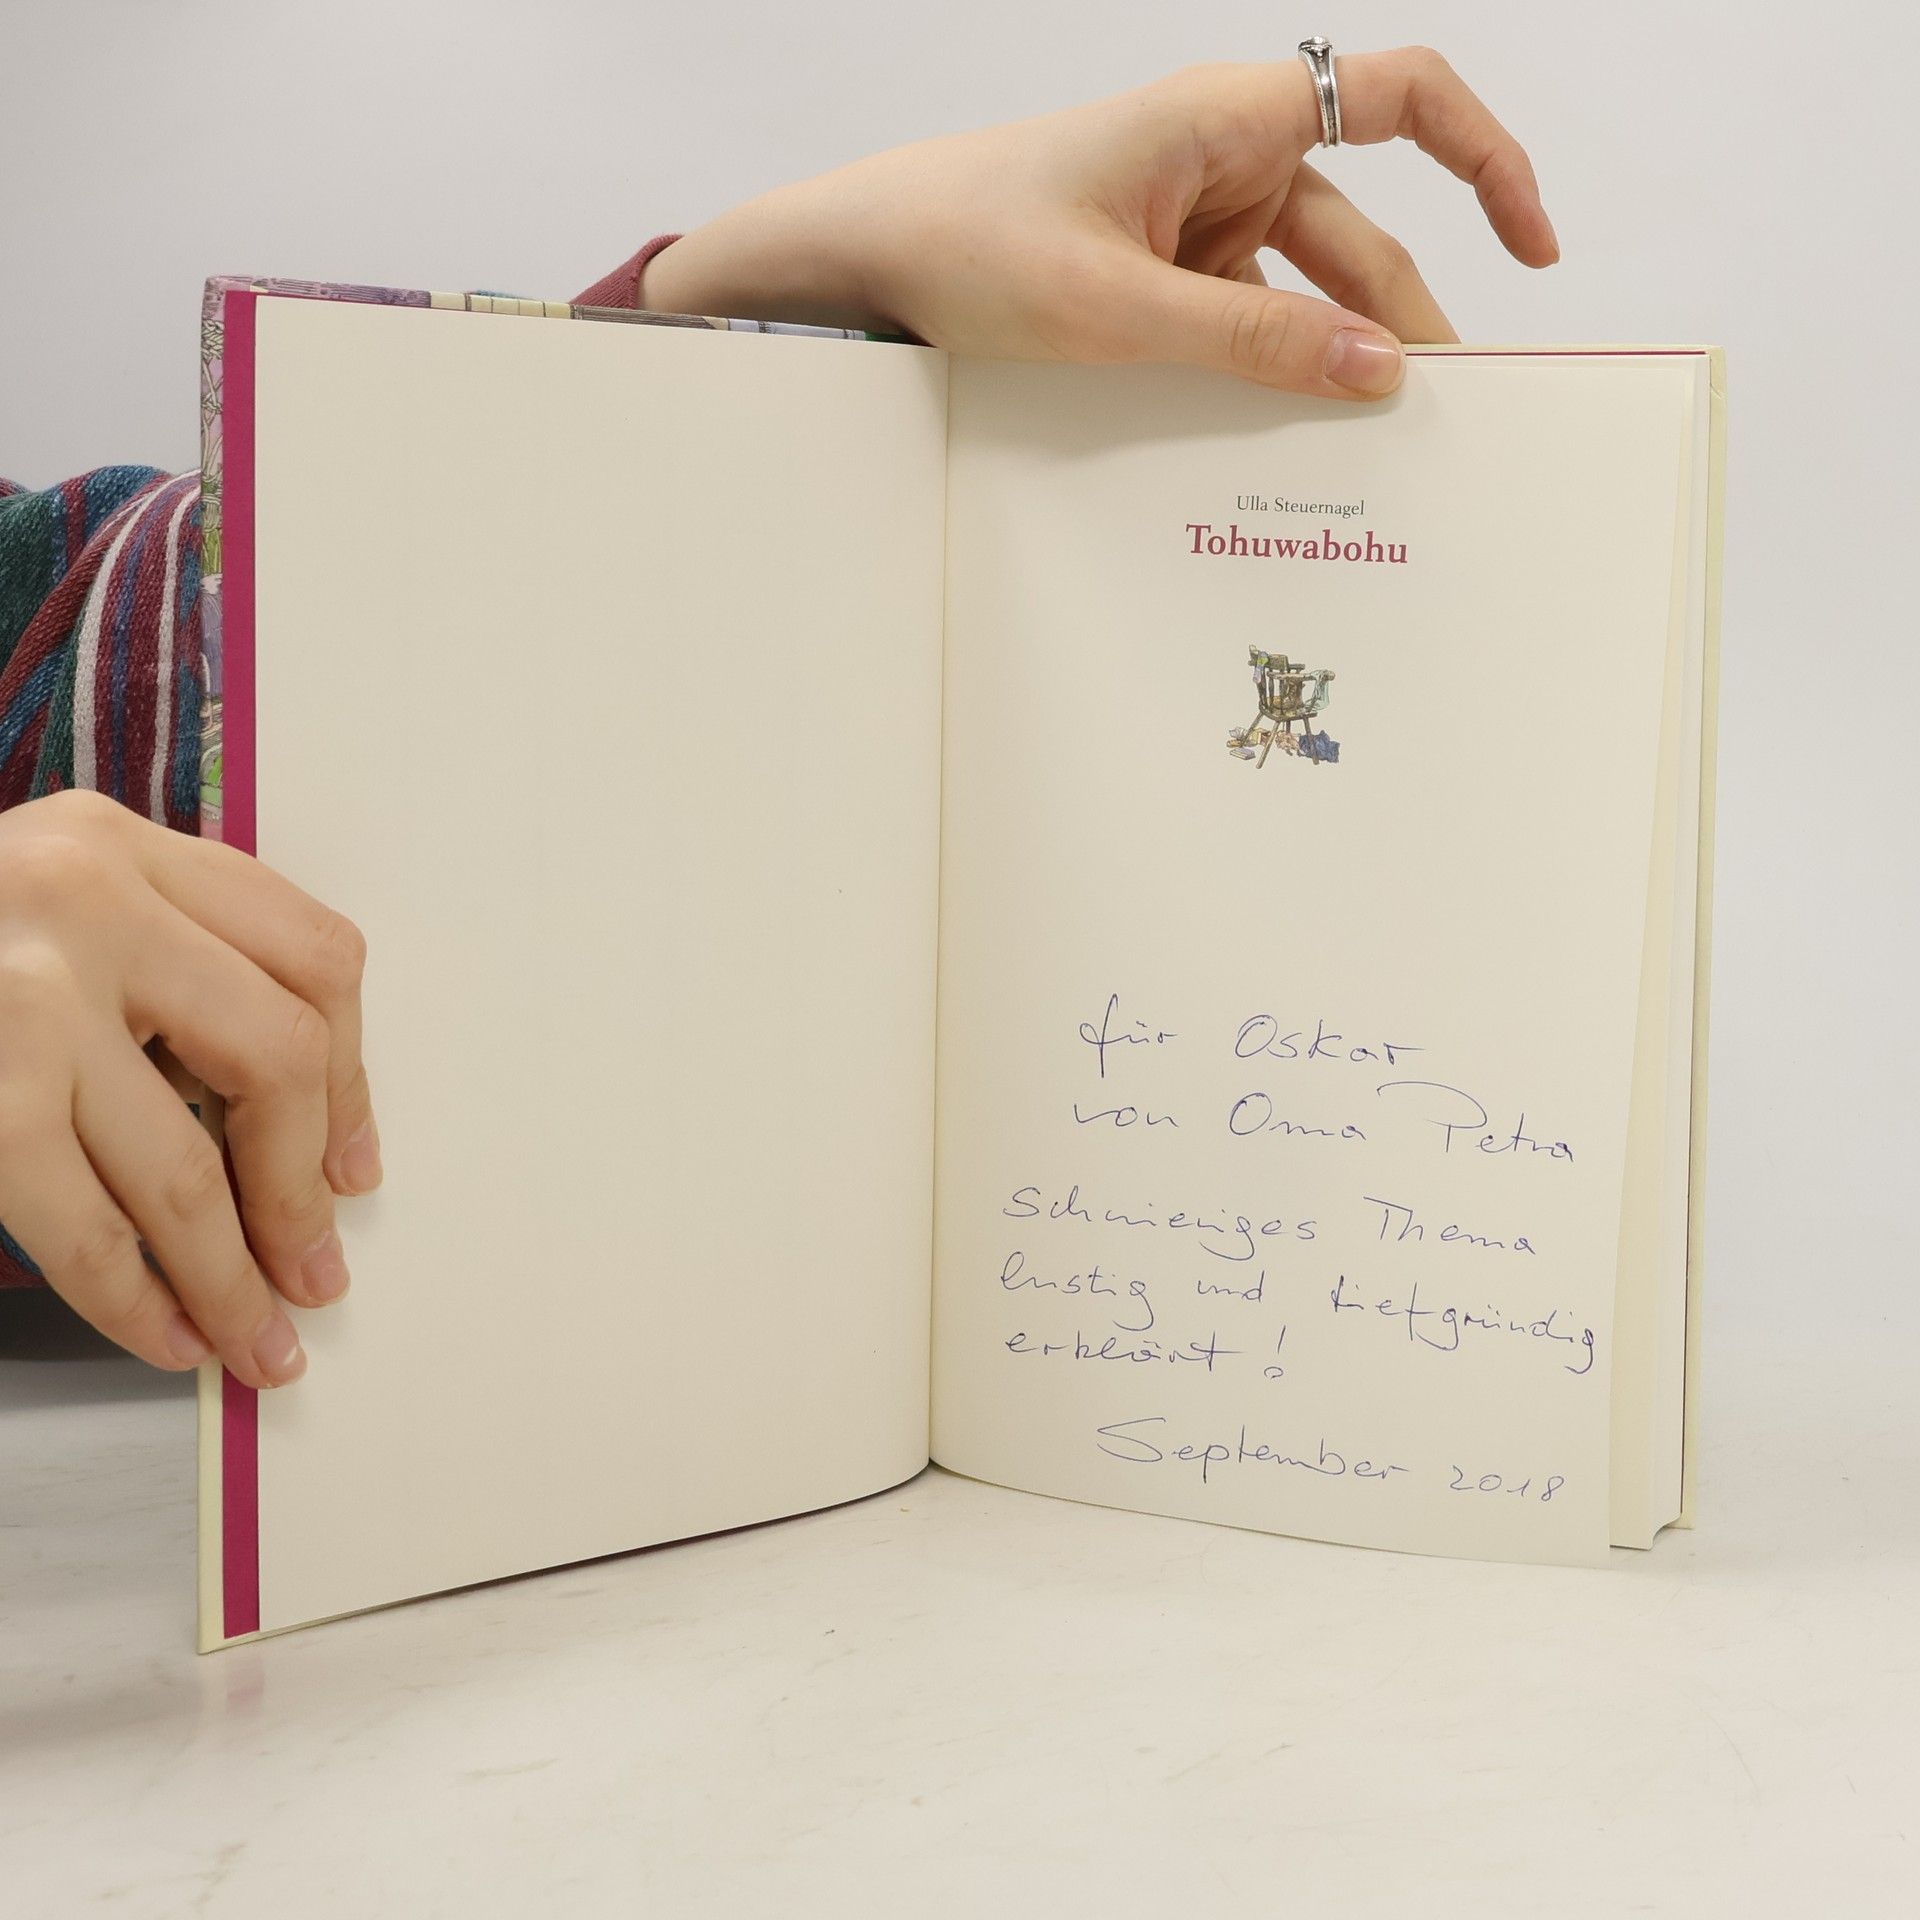 Ulla Steuernagel
Tohuwabohu
für Oskar
von Oma Petra
Schwieriges Thema
lustig und tiefgründig
erklärt!
September 2018